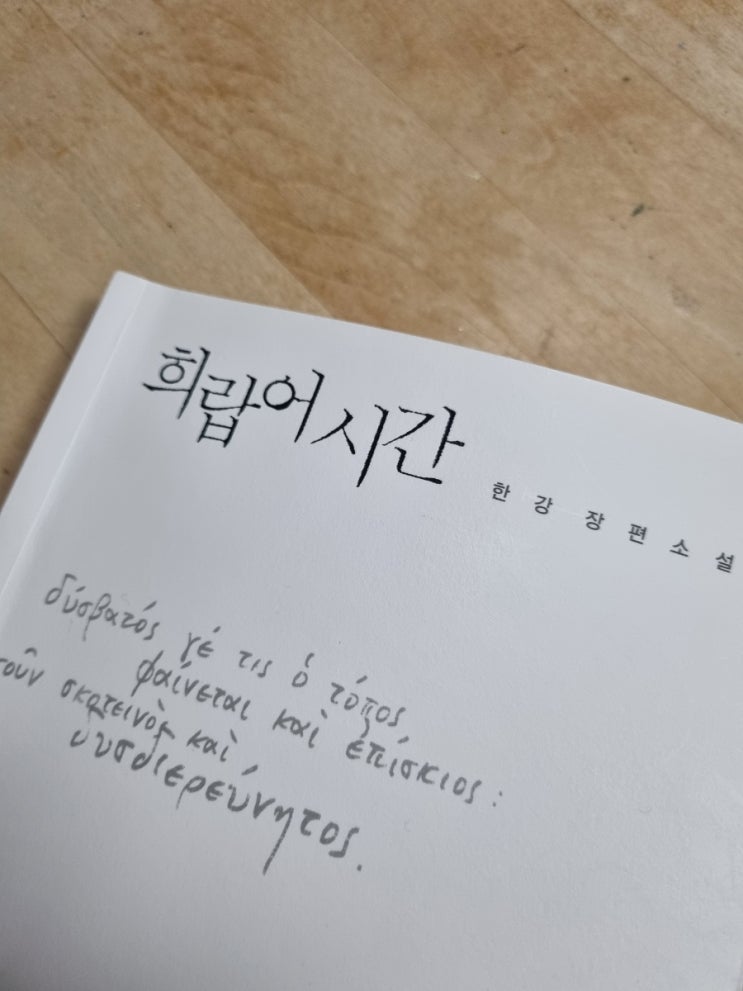 희랍어 시간
한강 장편소설
δύσβατός γέ τις ὁ τόπος
φαίνεται καὶ ἐπίσκιος:
σκοτεινὸς καὶ
δυσδιερεύνητος.